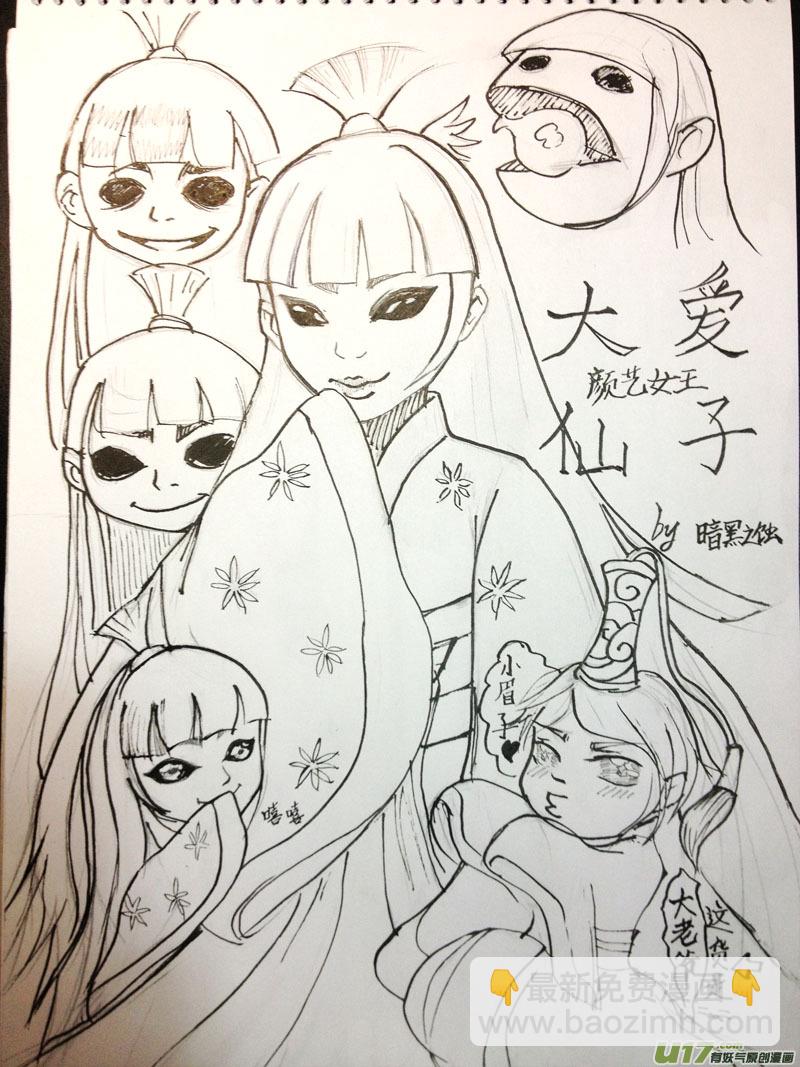 大爱
颜艺女王
仙子
by 暗黑之蚀
小眉子♥
嘻嘻
大老
这货
👇最新免费漫画👇
www.baozimh.com
U17.com
有妖气原创漫画